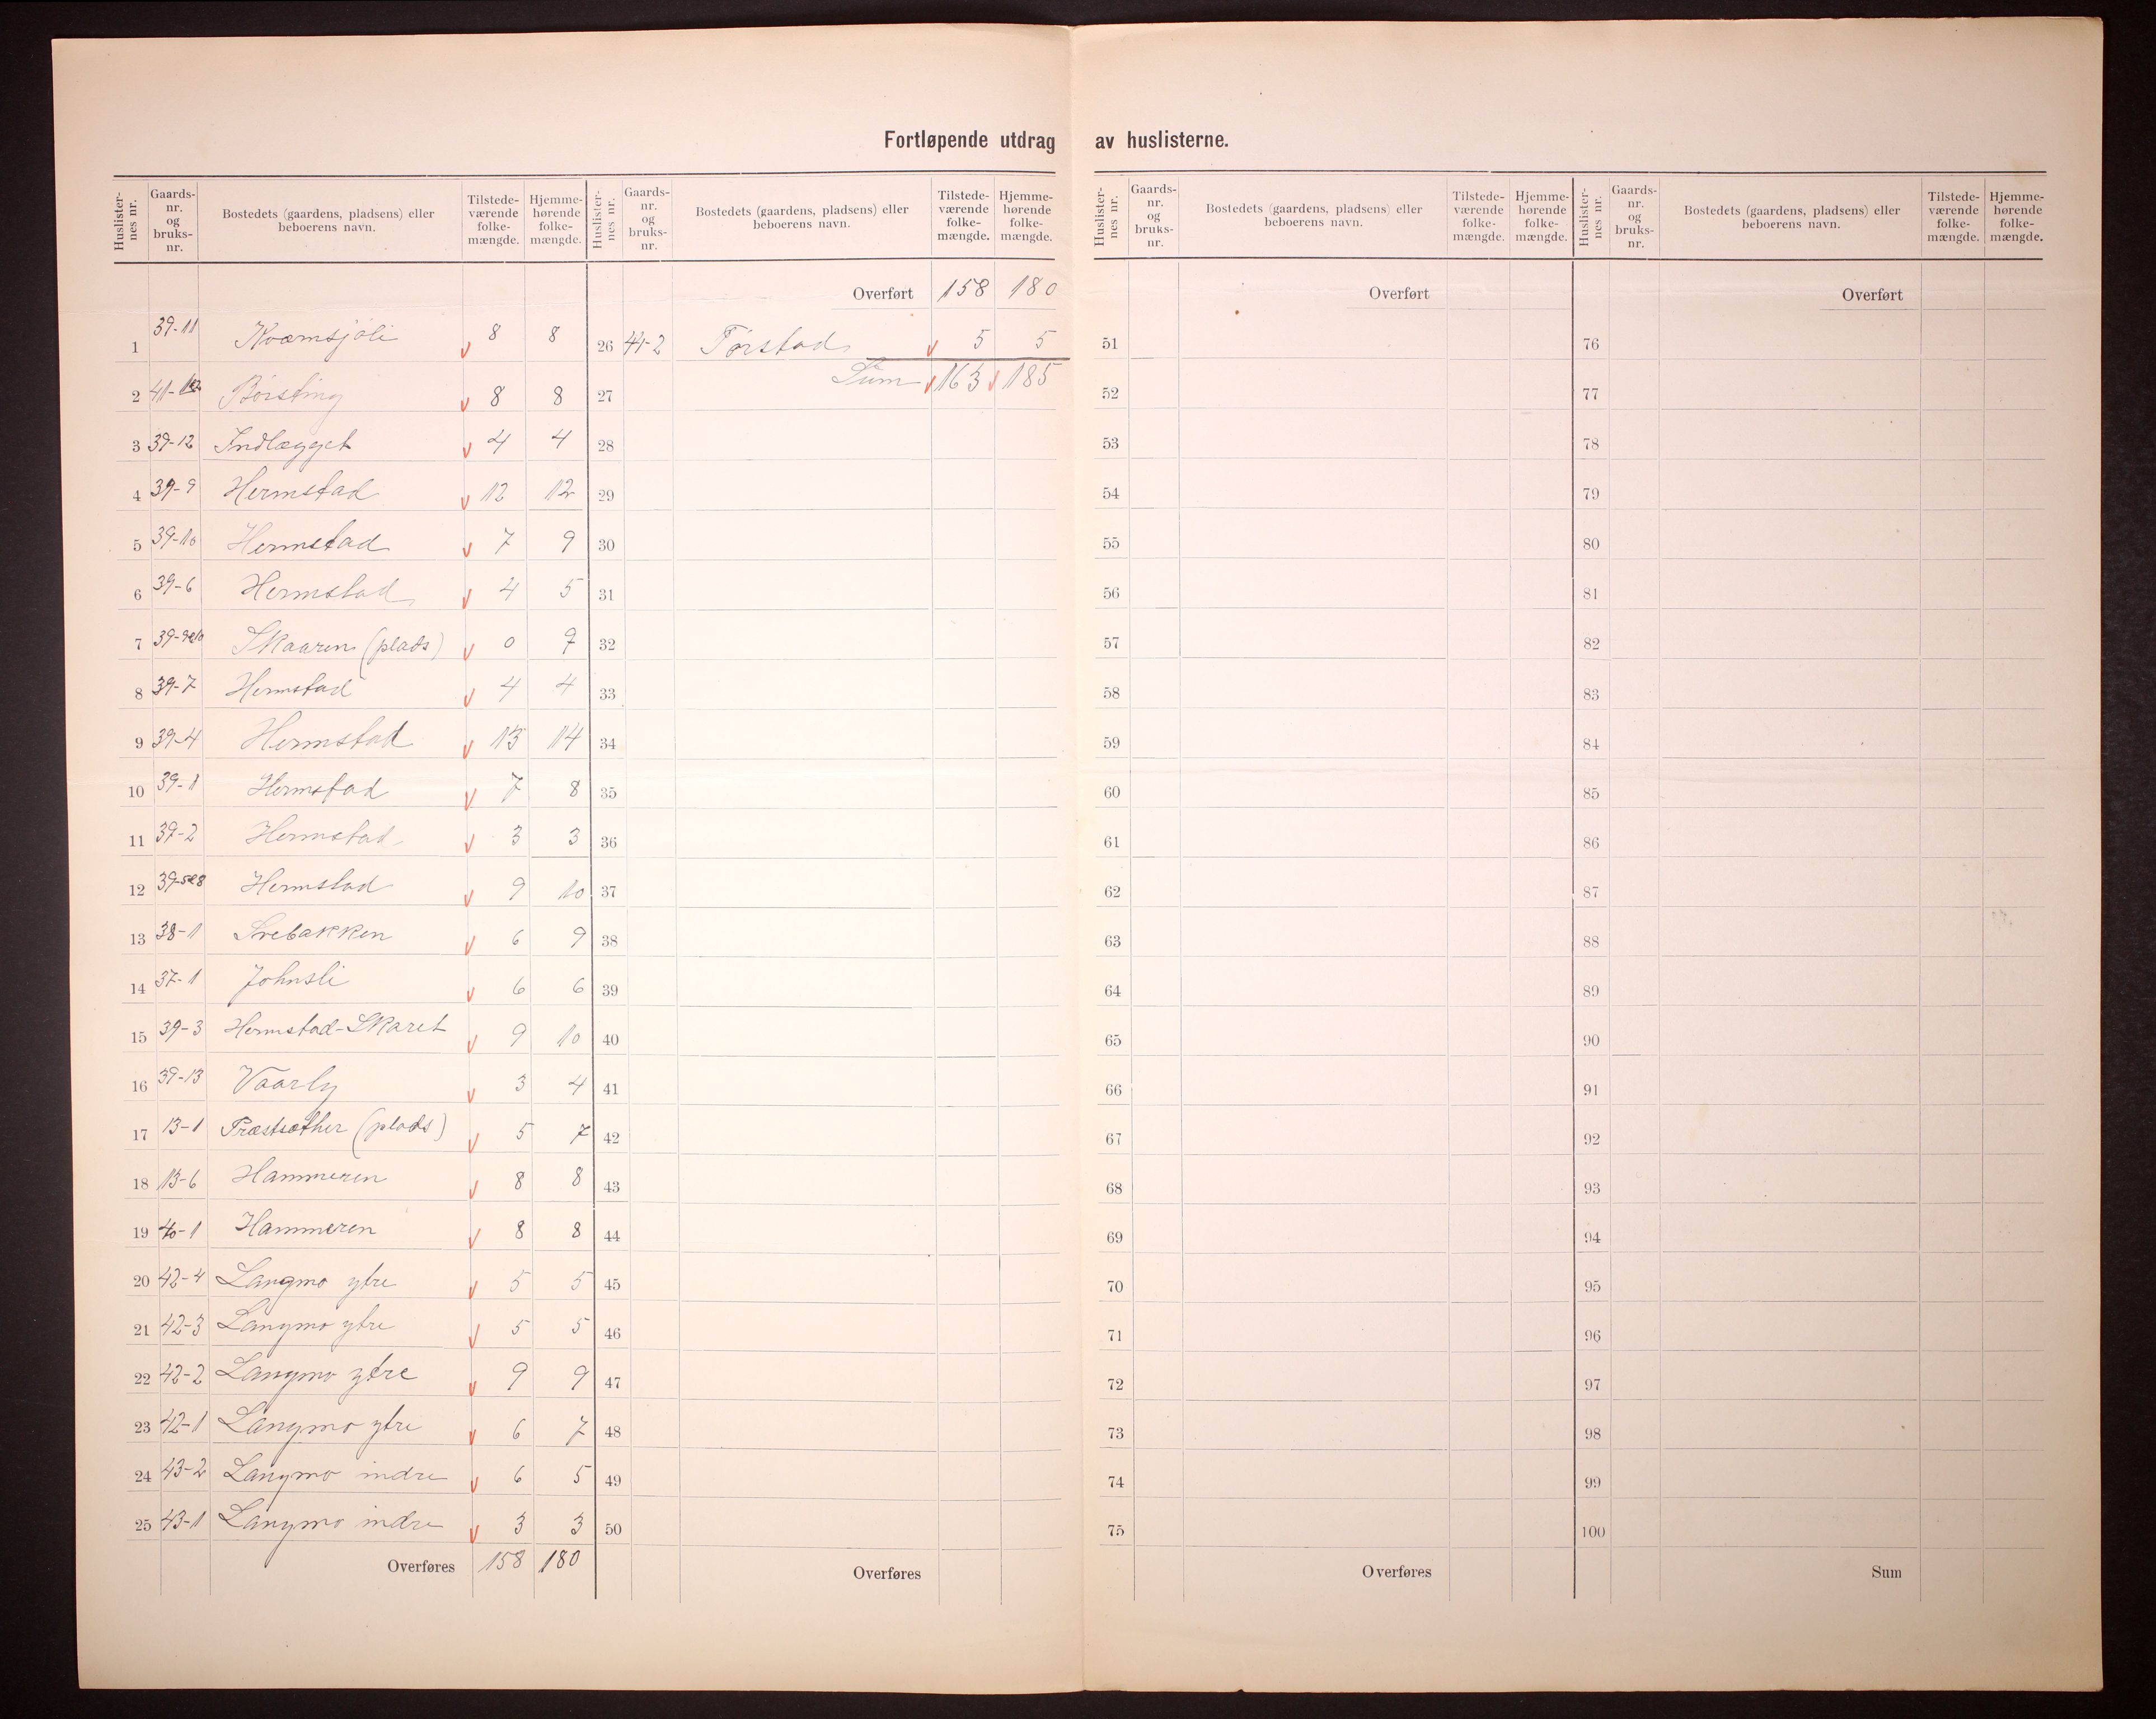 Fortløpende utdrag av huslisterne.
Huslister-nes nr. Gaards-nr. og bruks-nr. Bostedets (gaardens, pladsens) eller beboerens navn. Tilstede-værende folke-mængde. Hjemme-hørende folke-mængde.
1 39-11 Kvæmsjøli 8 8
2 41-1 Børsting 8 8
3 39-12 Indlægget 4 4
4 39-9 Hermstad 12 12
5 39-10 Hermstad 7 9
6 39-6 Hermstad 4 5
7 39-9&10 Skaaren (plads) 0 9
8 39-7 Hermstad 4 4
9 39-4 Hermstad 13 14
10 39-1 Hermstad 7 8
11 39-2 Hermstad 3 3
12 39-5&8 Hermstad 9 10
13 38-1 Svebakken 6 9
14 37-1 Johnsli 6 6
15 39-3 Hermstad-Skaret 9 10
16 39-13 Vaarly 3 4
17 13-1 Præstsæther (plads) 5 7
18 13-6 Hammeren 8 8
19 40-1 Hammeren 8 8
20 42-4 Langmo ytre 5 5
21 42-3 Langmo ytre 5 5
22 42-2 Langmo ytre 9 9
23 42-1 Langmo ytre 6 7
24 43-2 Langmo indre 6 5
25 43-1 Langmo indre 3 3
Overføres 158 180
Huslister-nes nr. Gaards-nr. og bruks-nr. Bostedets (gaardens, pladsens) eller beboerens navn. Tilstede-værende folke-mængde. Hjemme-hørende folke-mængde.
Overført 158 180
26 41-2 Torstad 5 5
27 Sum 163 185
28
29
30
31
32
33
34
35
36
37
38
39
40
41
42
43
44
45
46
47
48
49
50
Overføres
Huslister-nes nr. Gaards-nr. og bruks-nr. Bostedets (gaardens, pladsens) eller beboerens navn. Tilstede-værende folke-mængde. Hjemme-hørende folke-mængde.
Overført
51
52
53
54
55
56
57
58
59
60
61
62
63
64
65
66
67
68
69
70
71
72
73
74
75
Overføres
Huslister-nes nr. Gaards-nr. og bruks-nr. Bostedets (gaardens, pladsens) eller beboerens navn. Tilstede-værende folke-mængde. Hjemme-hørende folke-mængde.
Overført
76
77
78
79
80
81
82
83
84
85
86
87
88
89
90
91
92
93
94
95
96
97
98
99
100
Sum